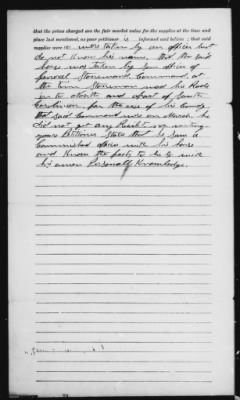 that the prices charged are the fair market value for the supplies at the time and
place last mentioned, as your petitioner is informed and believes; that said
supplies were ist were taken by an officer but
do not know his name, that the said
horse was taken by some officer of
General Stoneman Command, at
the time Stoneman made his Raid
in to North and part of South
Carolina for the use of his Comdg
that said Command were on March, he
did not get any Receipt or writing
your Petitioner States that he saw a
Commished officer with his horse
and Know the facts to be with
his own Personal Knowledge.